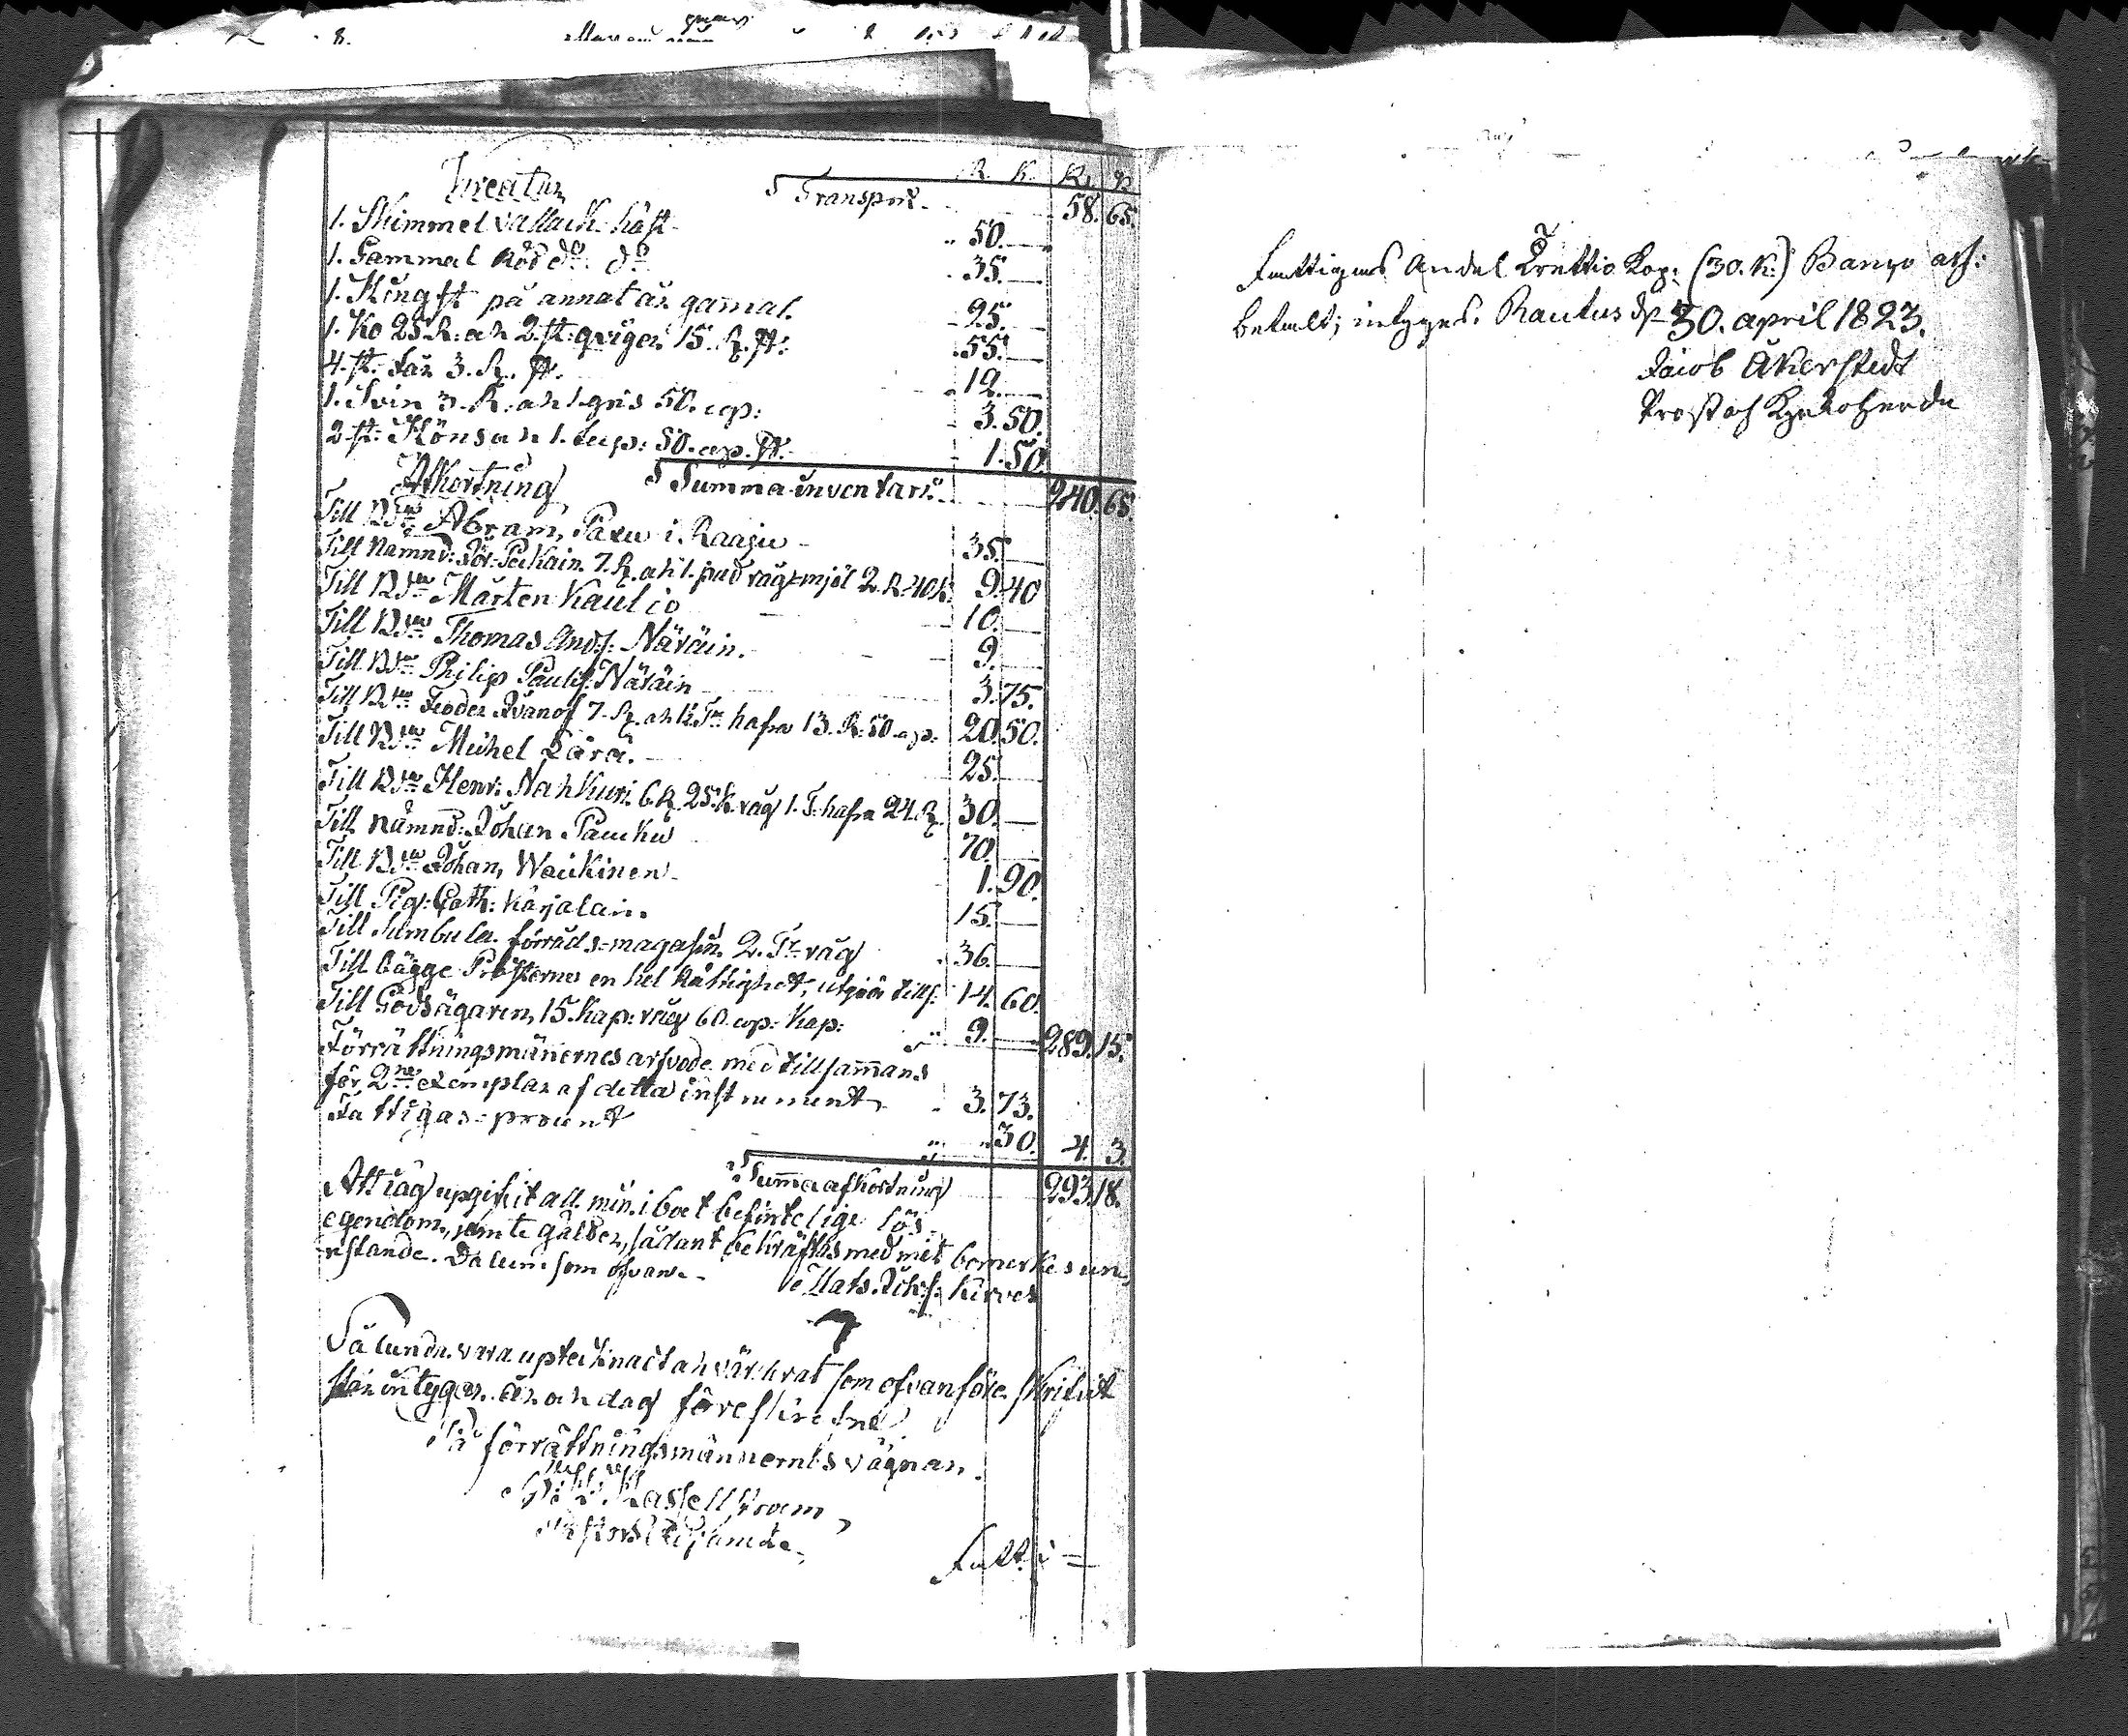 R. K. R. K.
Kreatur Transport 58. 65.
1. Skimmel vallack häst 50.
1. Gammal Röd d:o d:o 35.
1. Ung st på annat år gamal. 25.
1. Ko 25 R: och 2. st: qvigor 15. R. st: 55.
4. st. Får 3. R. st. 12.
1. Svin 3. R. och 1. gris 50. cop: 3. 50.
2. st: Höns och 1. tup: 50. cop. st: 1. 50.
Afkortning Summa inventarii 240. 65.
Till B:den Abram Paxu i Raaju 35.
Till Nämnd: Jör: Peikain. 7. R. och 1. pud råg-mjöl 2. R. 40 k. 9. 40
Till B:den Mårten Kaulio 10.
Till B:den Thomas Andf: Näräin. 9.
Till B:den Philip Paulif: Näräin 3. 75.
Till B:den Feoder Ivanof 7. R. och hafra 13. R. 50 cop: 20. 50.
Till B:den Michel Lärä. 25.
Till B:den Henr: Nahkuri 6. R. 25. k. råg 1. T: hafra 24. R. 30.
Till Nämnd: Johan Paucku 70.
Till B:den Johan Waikinen 1. 90.
Till Pig: Cath: Karjalain. 15.
Till Sumbula förråds-magasin 2. T:r råg 36.
Till bägge Prästerne en hel Rättighet, utgiör tills: 14. 60.
Till Godsägaren, 15. kap: råg 60. cop: kap: 9. 289. 15.
Förrättningsmännernes arfvode med tillsammans
för 2:ne exemplar af detta instrument 3. 73.
Fattigas-procent 30. 4. 3.
Summa afkortning 293. 18.
Att jag upgifvit all min i boet befintelige lös
egendom, jemte gälder, sådant bekräftas med mit bomerkes un
rstande. Datum som ofvan. Mats Kirves
Sålunda vara uptecknadt och värderat som ofvanföre skrifvit
står intygar. År och dag förestående.
På förrättningsmännernes vägnar.
Hasselstroem
Fatti=
Fattigas Andel Trettio Kop: (30. K:) Banco ass:
betalt; intygas. Rautus d. 30. april 1823.
Jacob Åkerstedt
Prost och Kyrkoherde